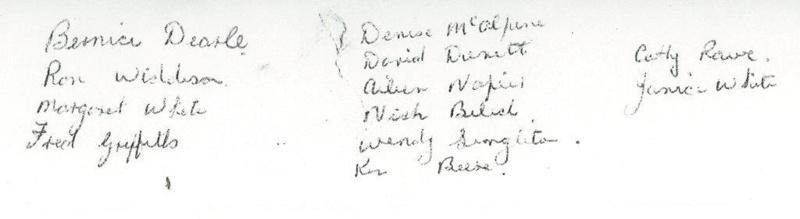 Bernice Dearle
Ron Widdison
Margaret White
Fred Griffiths
Denise McAlpine
David Dunett
Aileen Napier
Nick
Wendy Singleton.
Ken Beese.
Cathy Rowe.
Janice White